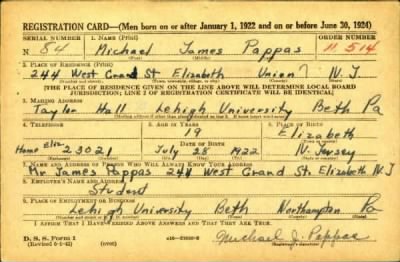 REGISTRATION CARD—(Men born on or after January 1, 1922 and on or before June 30, 1924)
SERIAL NUMBER 1. NAME (Print) ORDER NUMBER
N 84 Michael James Pappas 11514
(First) (Middle) (Last)
2. PLACE OF RESIDENCE (Print)
244 West Grand St Elizabeth Union N.J.
(Number and street) (Town, township, village, or city) (County) (State)
[THE PLACE OF RESIDENCE GIVEN ON THE LINE ABOVE WILL DETERMINE LOCAL BOARD
JURISDICTION; LINE 2 OF REGISTRATION CERTIFICATE WILL BE IDENTICAL]
3. MAILING ADDRESS
Taylor Hall Lehigh University Beth Pa
[Mailing address if other than place indicated on line 2. If same, insert word same]
4. TELEPHONE 5. AGE IN YEARS 6. PLACE OF BIRTH
19 Elizabeth
Home Eliz. DATE OF BIRTH (Town or county)
23021 July 28 1922 N. Jersey
(Exchange) (Number) (Mo.) (Day) (Yr.) (State or country)
7. NAME AND ADDRESS OF PERSON WHO WILL ALWAYS KNOW YOUR ADDRESS
Mr. James Pappas 244 West Grand St. Elizabeth N.J
8. EMPLOYER'S NAME AND ADDRESS
Student
9. PLACE OF EMPLOYMENT OR BUSINESS
Lehigh University Beth Northampton Pa
(Number and street or R. F. D. number) (Town) (County) (State)
I AFFIRM THAT I HAVE VERIFIED ABOVE ANSWERS AND THAT THEY ARE TRUE.
D. S. S. Form 1
(Revised 6-1-42) (over) Michael J. Pappas